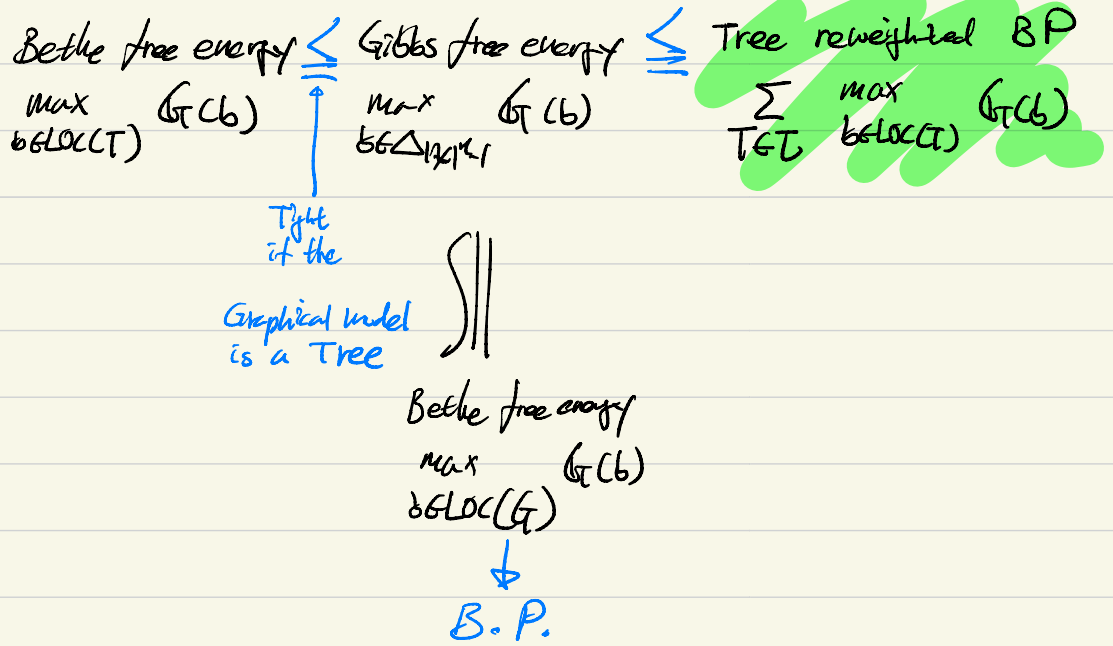 Bethe free energy ≤ Gibbs free energy ≤ Tree reweighted BP
max G(b) max G(b) Σ max G(b)
b∈LOC(T) b∈Δ|χ|ⁿ-1 T∈T b∈LOC(T)
Tight
if the
Graphical model
is a Tree
Bethe free energy
max G(b)
b∈LOC(G)
B.P.